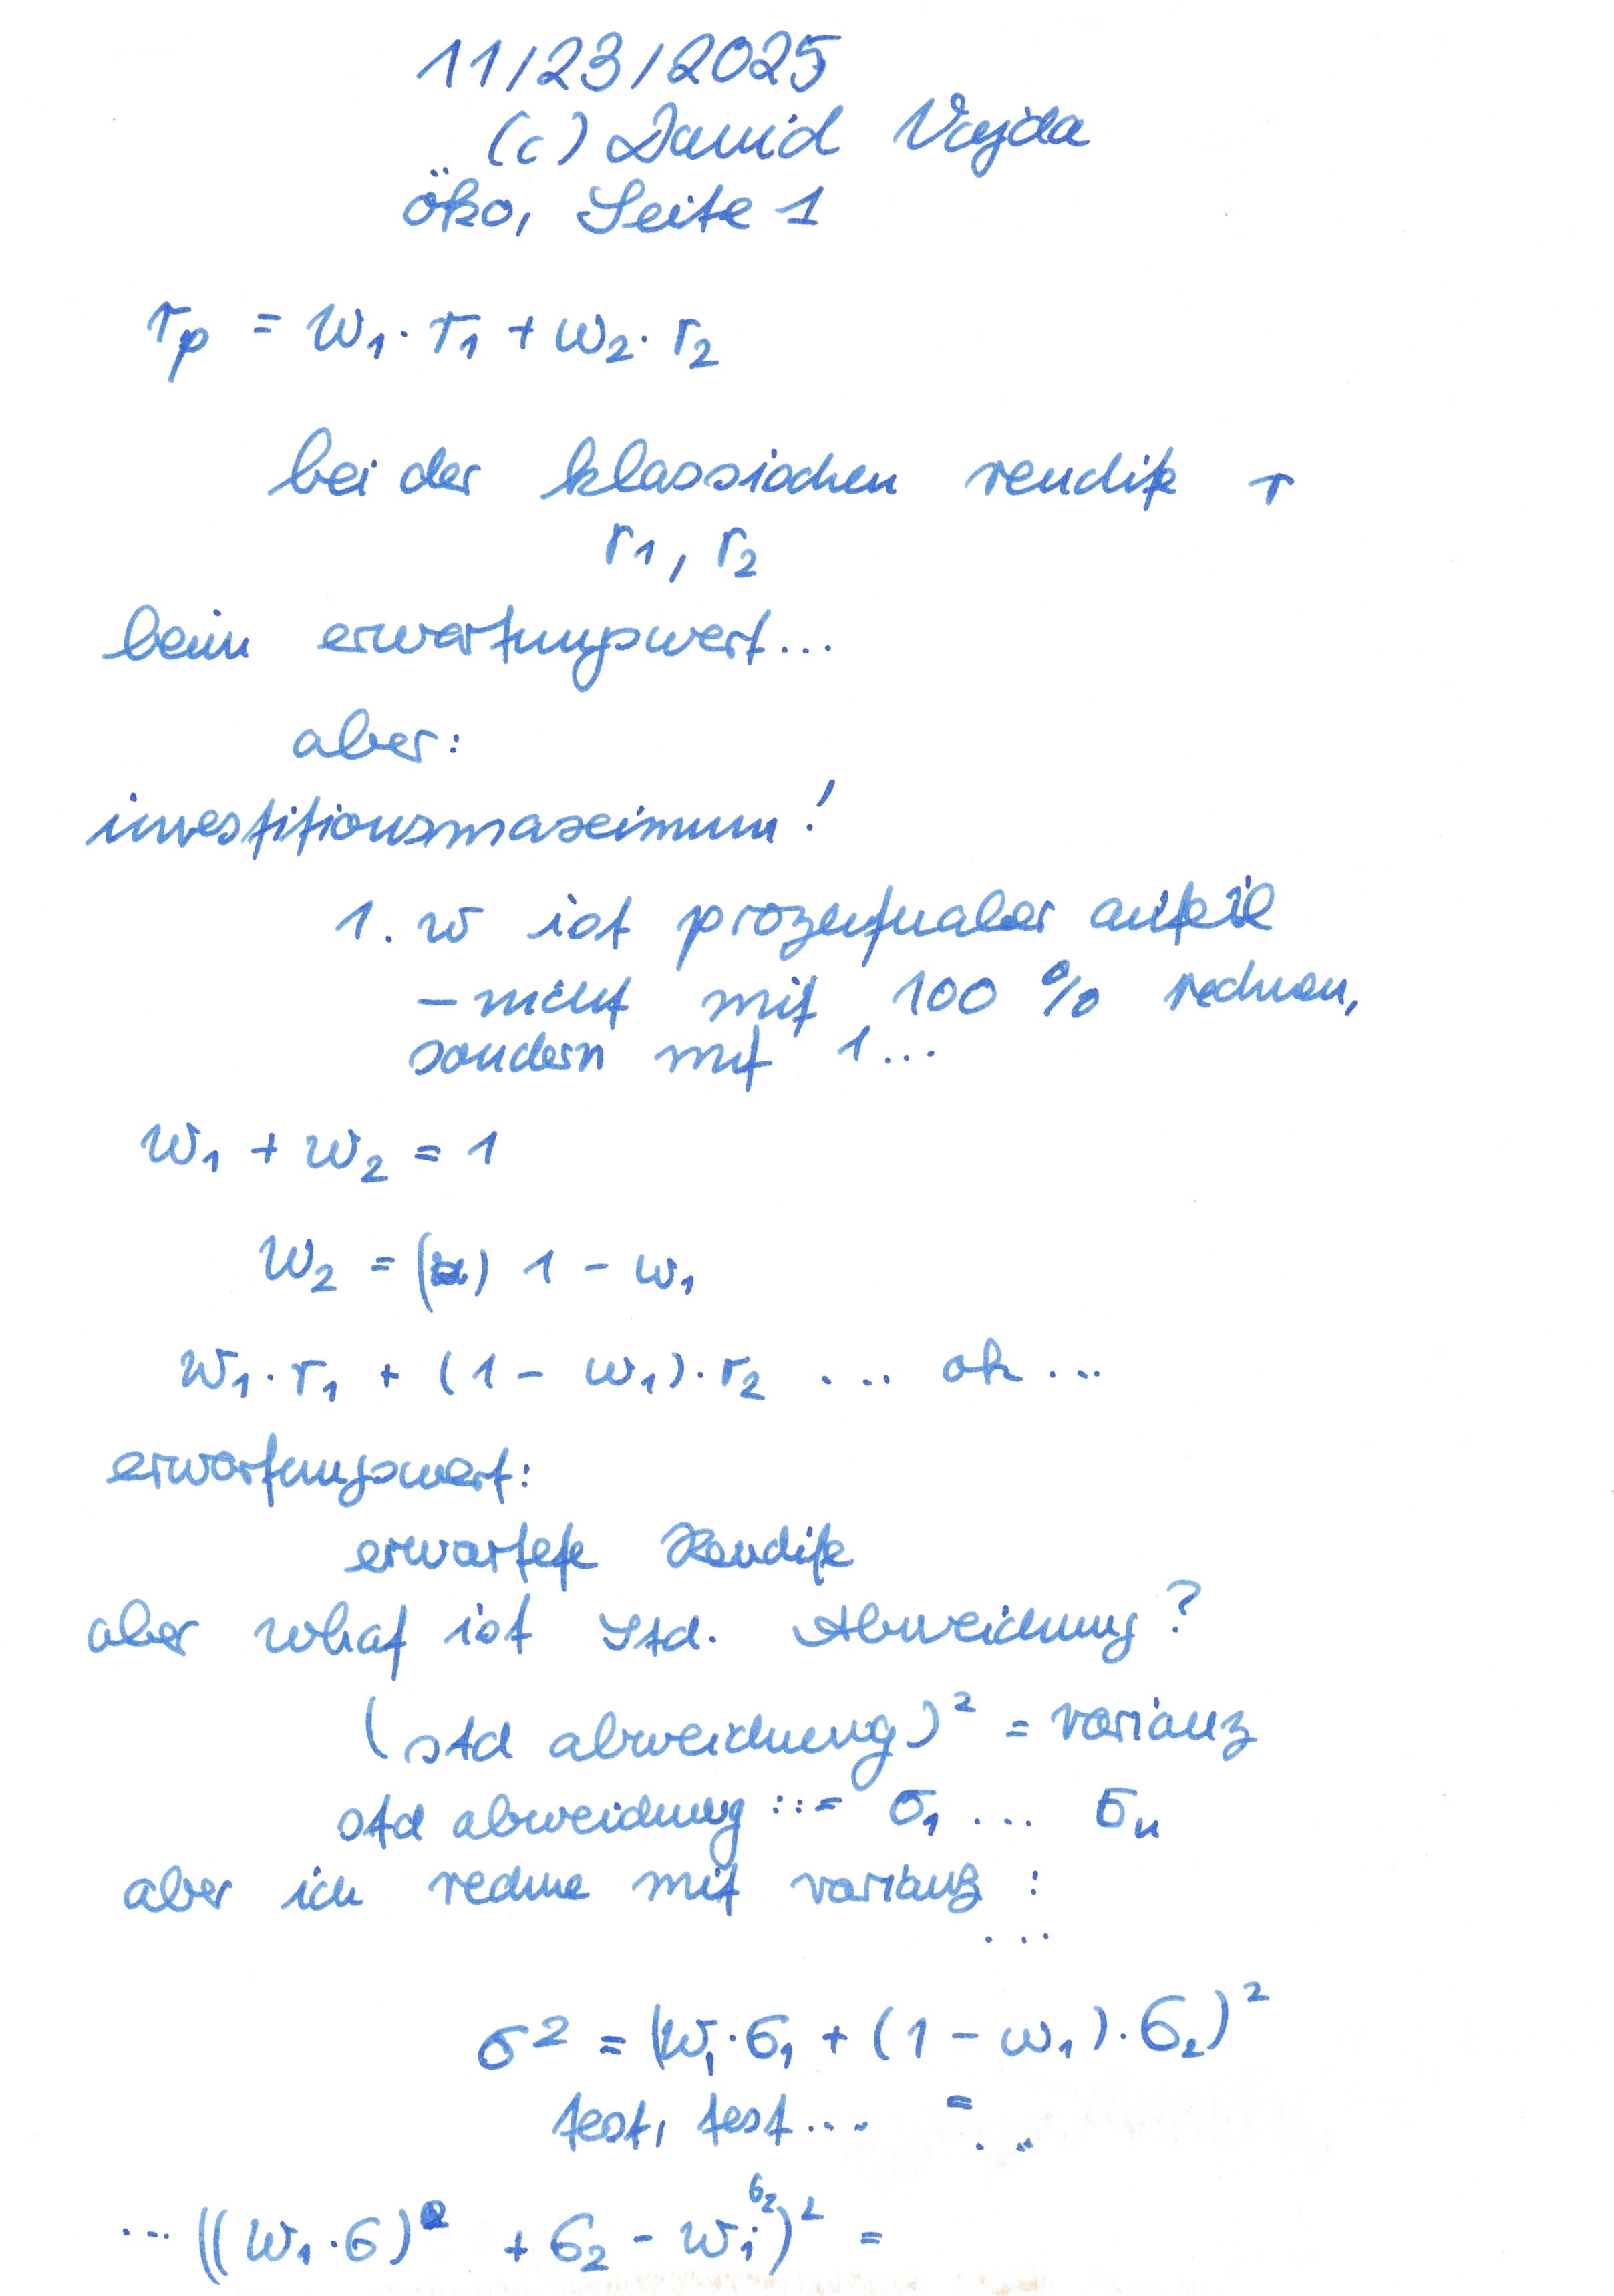 11/23/2025
(c) David Vajda
öko, Seite 1
rp = w1 · r1 + w2 · r2
bei der klassischen rendite r
r1, r2
beim erwartungswert...
aber:
investitionsmaximum!
1. w ist prozentualer anteil
- nicht mit 100 % rechnen,
sondern mit 1...
w1 + w2 = 1
w2 = ( ) 1 - w1
w1 · r1 + (1 - w1) · r2 ... ok ...
erwartungswert:
erwartete Rendite
aber what ist Std. Abweichnung?
(std abweichnung)² = varianz
std abweichnung ::= σ1 ... σn
aber ich rechne mit varianz :
...
σ² = (w1 · σ1 + (1 - w1) · σ2)²
test, test ... =
...
... ((w1 · σ) + σ2 - w1 σ2)² =